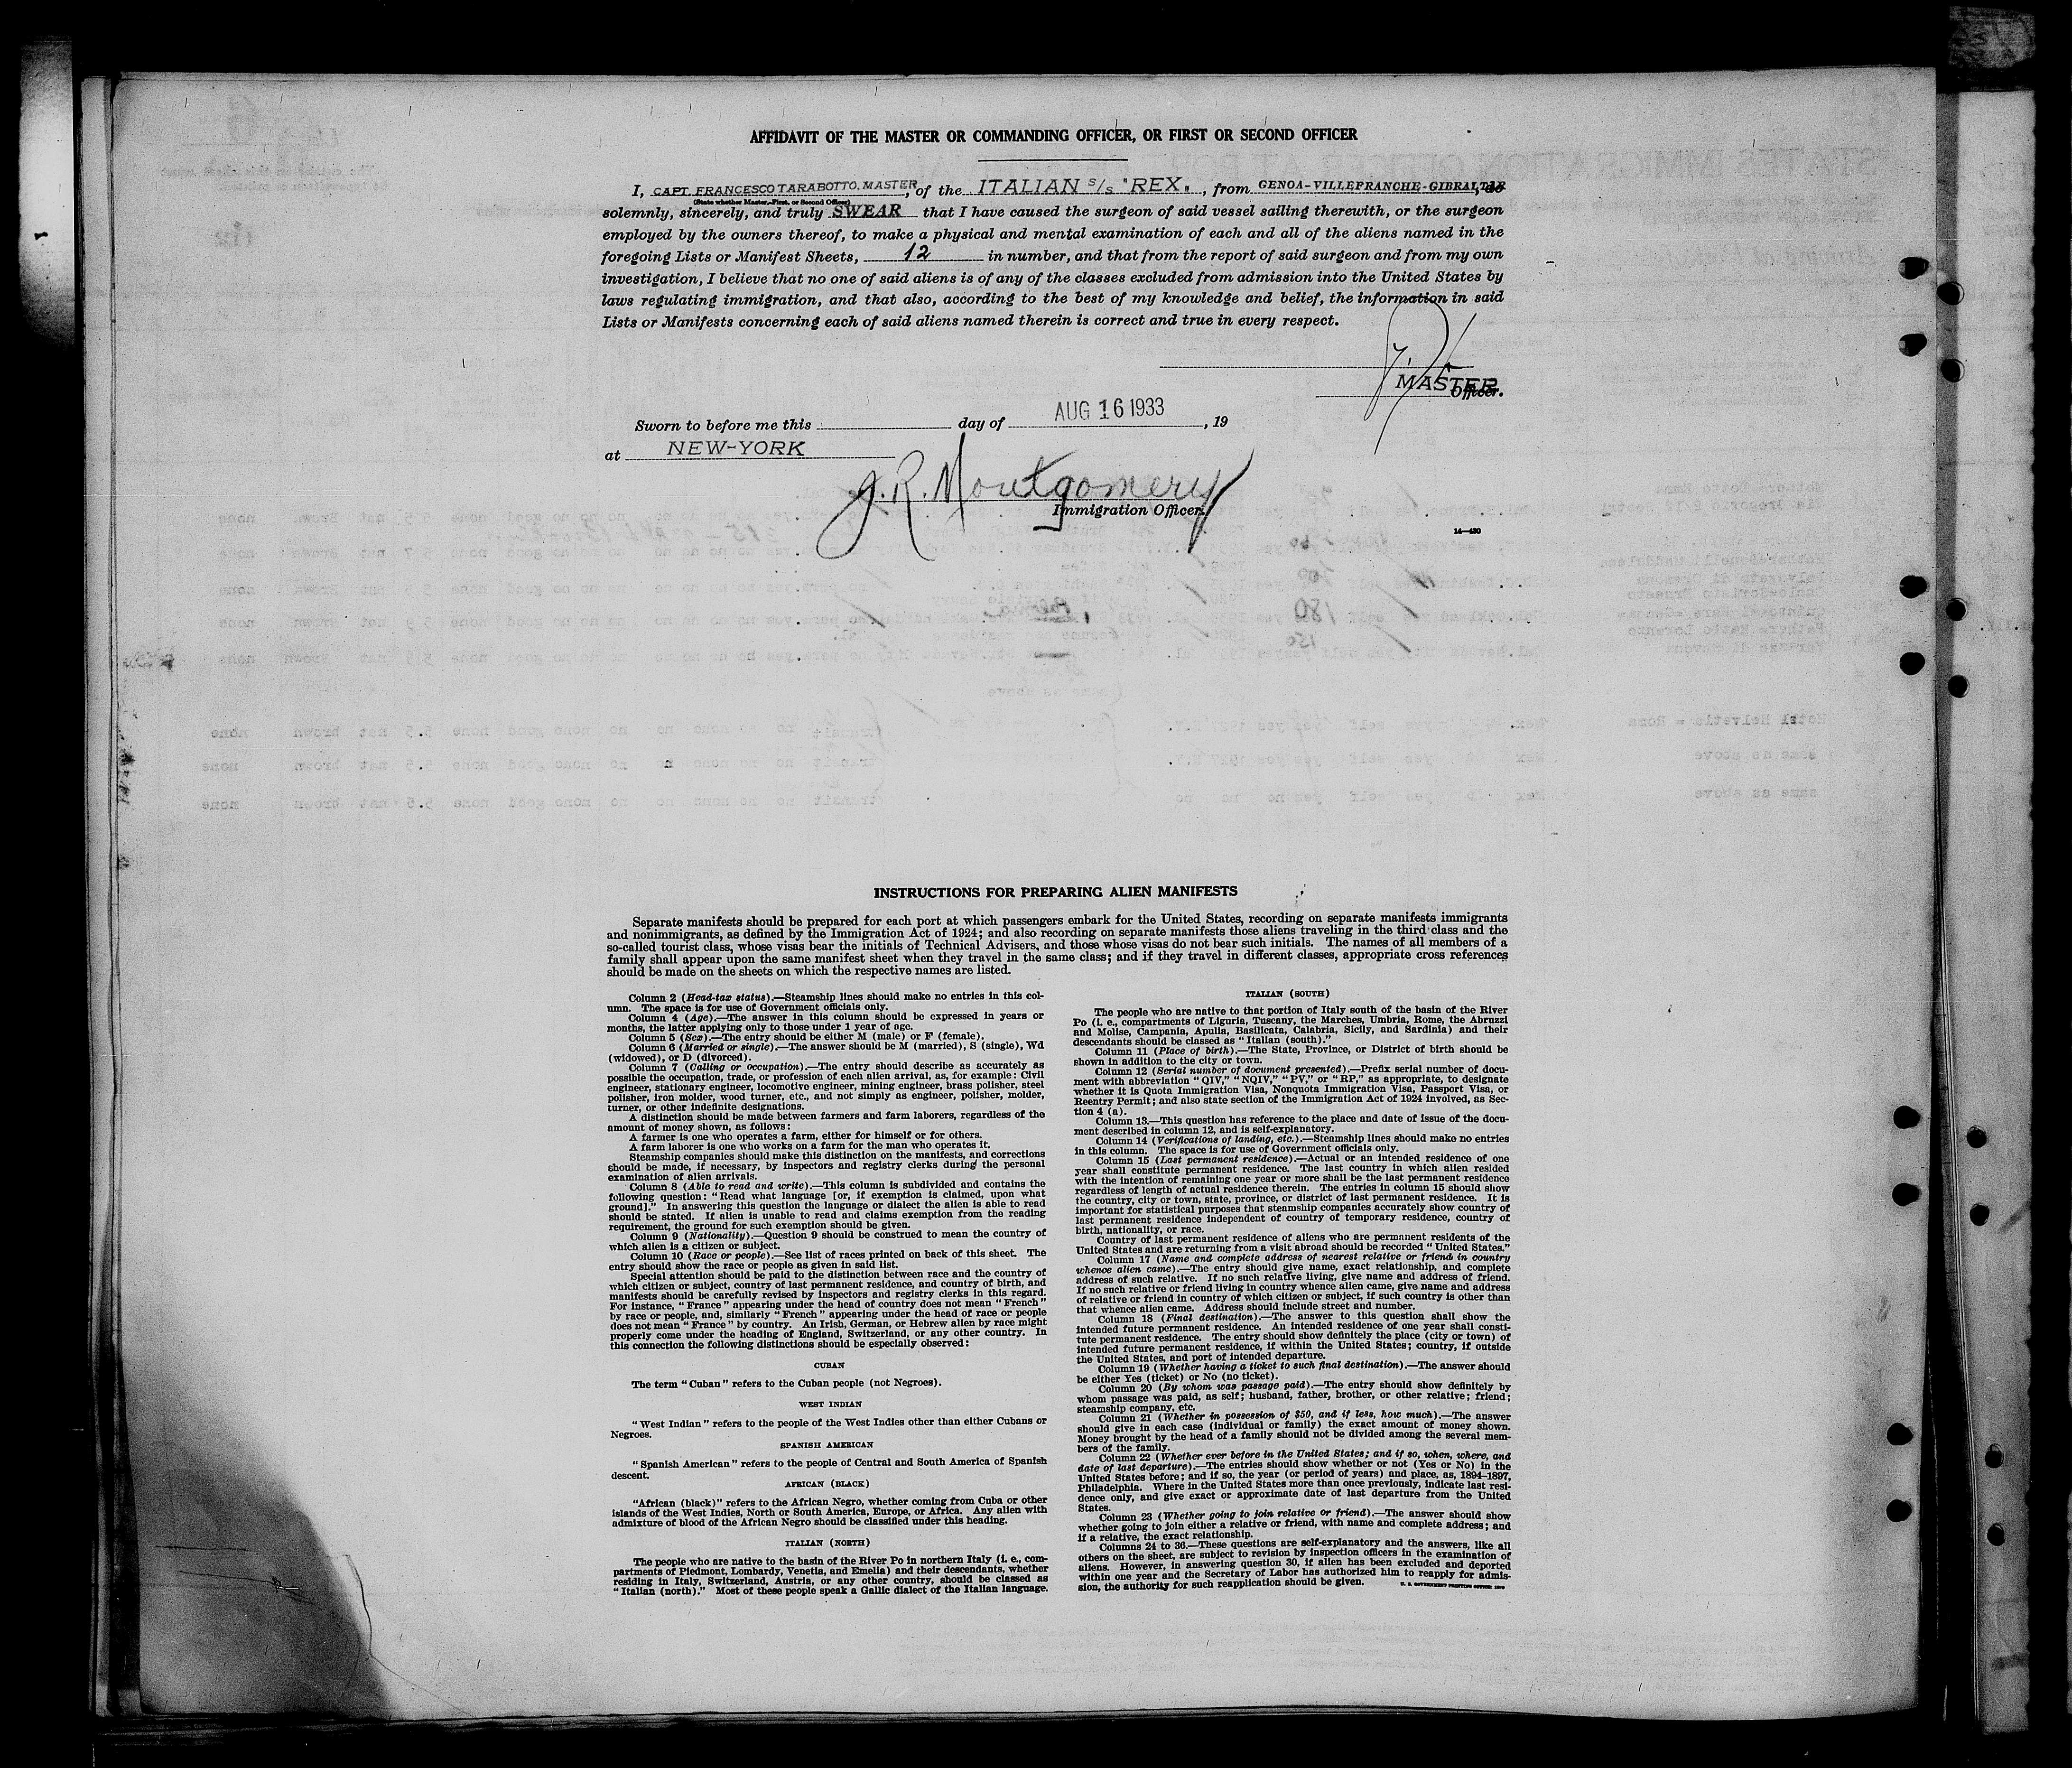 AFFIDAVIT OF THE MASTER OR COMMANDING OFFICER, OR FIRST OR SECOND OFFICER
I, CAPT. FRANCESCO TARABOTTO, MASTER, of the ITALIAN S/S "REX", from GENOA-VILLEFRANCHE-GIBRALTAR, do
(State whether Master, First, or Second Officer)
solemnly, sincerely, and truly SWEAR that I have caused the surgeon of said vessel sailing therewith, or the surgeon
employed by the owners thereof, to make a physical and mental examination of each and all of the aliens named in the
foregoing Lists or Manifest Sheets, 12 in number, and that from the report of said surgeon and from my own
investigation, I believe that no one of said aliens is of any of the classes excluded from admission into the United States by
laws regulating immigration, and that also, according to the best of my knowledge and belief, the information in said
Lists or Manifests concerning each of said aliens named therein is correct and true in every respect.
MASTER
Officer.
Sworn to before me this day of AUG 16 1933, 19
at NEW-YORK
J. R. Montgomery
Immigration Officer.
14—430
INSTRUCTIONS FOR PREPARING ALIEN MANIFESTS
Separate manifests should be prepared for each port at which passengers embark for the United States, recording on separate manifests immigrants
and nonimmigrants, as defined by the Immigration Act of 1924; and also recording on separate manifests those aliens traveling in the third class and the
so-called tourist class, whose visas bear the initials of Technical Advisers, and those whose visas do not bear such initials. The names of all members of a
family shall appear upon the same manifest sheet when they travel in the same class; and if they travel in different classes, appropriate cross references
should be made on the sheets on which the respective names are listed.
Column 2 (Head-tax status).—Steamship lines should make no entries in this col-
umn. The space is for use of Government officials only.
Column 4 (Age).—The answer in this column should be expressed in years or
months, the latter applying only to those under 1 year of age.
Column 5 (Sex).—The entry should be either M (male) or F (female).
Column 6 (Married or single).—The answer should be M (married), S (single), Wd
(widowed), or D (divorced).
Column 7 (Calling or occupation).—The entry should describe as accurately as
possible the occupation, trade, or profession of each alien arrival, as, for example: Civil
engineer, stationary engineer, locomotive engineer, mining engineer, brass polisher, steel
polisher, iron molder, wood turner, etc., and not simply as engineer, polisher, molder,
turner, or other indefinite designations.
A distinction should be made between farmers and farm laborers, regardless of the
amount of money shown, as follows:
A farmer is one who operates a farm, either for himself or for others.
A farm laborer is one who works on a farm for the man who operates it.
Steamship companies should make this distinction on the manifests, and corrections
should be made, if necessary, by inspectors and registry clerks during the personal
examination of alien arrivals.
Column 8 (Able to read and write).—This column is subdivided and contains the
following question: "Read what language [or, if exemption is claimed, upon what
ground]." In answering this question the language or dialect the alien is able to read
should be stated. If alien is unable to read and claims exemption from the reading
requirement, the ground for such exemption should be given.
Column 9 (Nationality).—Question 9 should be construed to mean the country of
which alien is a citizen or subject.
Column 10 (Race or people).—See list of races printed on back of this sheet. The
entry should show the race or people as given in said list.
Special attention should be paid to the distinction between race and the country of
which citizen or subject, country of last permanent residence, and country of birth, and
manifests should be carefully revised by inspectors and registry clerks in this regard.
For instance, "France" appearing under the head of country does not mean "French"
by race or people, and, similarly "French" appearing under the head of race or people
does not mean "France" by country. An Irish, German, or Hebrew alien by race might
properly come under the heading of England, Switzerland, or any other country. In
this connection the following distinctions should be especially observed:
CUBAN
The term "Cuban" refers to the Cuban people (not Negroes).
WEST INDIAN
"West Indian" refers to the people of the West Indies other than either Cubans or
Negroes.
SPANISH AMERICAN
"Spanish American" refers to the people of Central and South America of Spanish
descent.
AFRICAN (BLACK)
"African (black)" refers to the African Negro, whether coming from Cuba or other
islands of the West Indies, North or South America, Europe, or Africa. Any alien with
admixture of blood of the African Negro should be classified under this heading.
ITALIAN (NORTH)
The people who are native to the basin of the River Po in northern Italy (i. e., com-
partments of Piedmont, Lombardy, Venetia, and Emelia) and their descendants, whether
residing in Italy, Switzerland, Austria, or any other country, should be classed as
"Italian (north)." Most of these people speak a Gallic dialect of the Italian language.
ITALIAN (SOUTH)
The people who are native to that portion of Italy south of the basin of the River
Po (i. e., compartments of Liguria, Tuscany, the Marches, Umbria, Rome, the Abruzzi
and Molise, Campania, Apulia, Basilicata, Calabria, Sicily, and Sardinia) and their
descendants should be classed as "Italian (south)."
Column 11 (Place of birth).—The State, Province, or District of birth should be
shown in addition to the city or town.
Column 12 (Serial number of document presented).—Prefix serial number of docu-
ment with abbreviation "QIV," "NQIV," "PV," or "RP," as appropriate, to designate
whether it is Quota Immigration Visa, Nonquota Immigration Visa, Passport Visa, or
Reentry Permit; and also state section of the Immigration Act of 1924 involved, as Sec-
tion 4 (a).
Column 13.—This question has reference to the place and date of issue of the docu-
ment described in column 12, and is self-explanatory.
Column 14 (Verifications of landing, etc.).—Steamship lines should make no entries
in this column. The space is for use of Government officials only.
Column 15 (Last permanent residence).—Actual or an intended residence of one
year shall constitute permanent residence. The last country in which alien resided
with the intention of remaining one year or more shall be the last permanent residence
regardless of length of actual residence therein. The entries in column 15 should show
the country, city or town, state, province, or district of last permanent residence. It is
important for statistical purposes that steamship companies accurately show country of
last permanent residence independent of country of temporary residence, country of
birth, nationality, or race.
Country of last permanent residence of aliens who are permanent residents of the
United States and are returning from a visit abroad should be recorded "United States."
Column 17 (Name and complete address of nearest relative or friend in country
whence alien came).—The entry should give name, exact relationship, and complete
address of such relative. If no such relative living, give name and address of friend.
If no such relative or friend living in country whence alien came, give name and address
of relative or friend in country of which citizen or subject, if such country is other than
that whence alien came. Address should include street and number.
Column 18 (Final destination).—The answer to this question shall show the
intended future permanent residence. An intended residence of one year shall consti-
tute permanent residence. The entry should show definitely the place (city or town) of
intended future permanent residence, if within the United States; country, if outside
the United States, and port of intended departure.
Column 19 (Whether having a ticket to such final destination).—The answer should
be either Yes (ticket) or No (no ticket).
Column 20 (By whom was passage paid).—The entry should show definitely by
whom passage was paid, as self; husband, father, brother, or other relative; friend;
steamship company, etc.
Column 21 (Whether in possession of $50, and if less, how much).—The answer
should give in each case (individual or family) the exact amount of money shown.
Money brought by the head of a family should not be divided among the several mem-
bers of the family.
Column 22 (Whether ever before in the United States; and if so, when, where, and
date of last departure).—The entries should show whether or not (Yes or No) in the
United States before; and if so, the year (or period of years) and place, as, 1894–1897,
Philadelphia. Where in the United States more than once previously, indicate last resi-
dence only, and give exact or approximate date of last departure from the United
States.
Column 23 (Whether going to join relative or friend).—The answer should show
whether going to join either a relative or friend, with name and complete address; and
if a relative, the exact relationship.
Columns 24 to 36.—These questions are self-explanatory and the answers, like all
others on the sheet, are subject to revision by inspection officers in the examination of
aliens. However, in answering question 30, if alien has been excluded and deported
within one year and the Secretary of Labor has authorized him to reapply for admis-
sion, the authority for such reapplication should be given.
U. S. GOVERNMENT PRINTING OFFICE